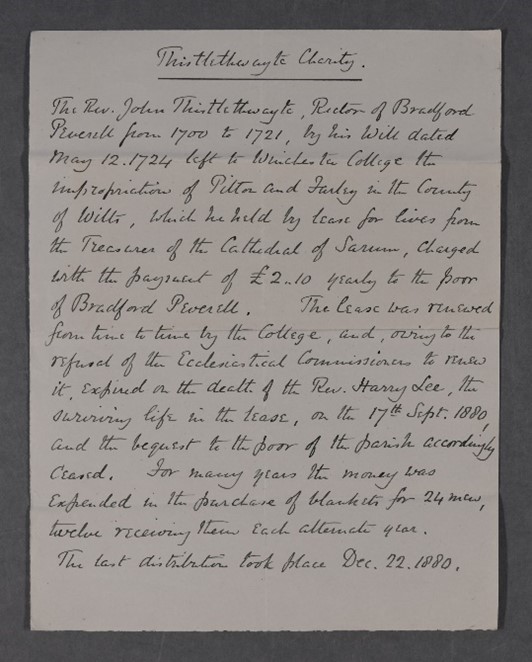 Thistlethwayte Charity.
The Rev. John Thistlethwayte, Rector of Bradford
Peverell from 1700 to 1721, by his Will dated
May 12. 1724 left to Winchester College the
impropriation of Pitton and Farley in the County
of Wilts, which he held by lease for lives from
the Treasurer of the Cathedral of Sarum, charged
with the payment of £2..10 yearly to the poor
of Bradford Peverell. The lease was renewed
from time to time by the College, and, owing to the
refusal of the Ecclesiastical Commissioners to renew
it, expired on the death of the Rev. Harry Lee, the
surviving life in the lease, on the 17th Sept. 1880,
and the bequest to the poor of the parish accordingly
ceased. For many years the money was
expended in the purchase of blankets for 24 men,
twelve receiving them each alternate year.
The last distribution took place Dec. 22. 1880.